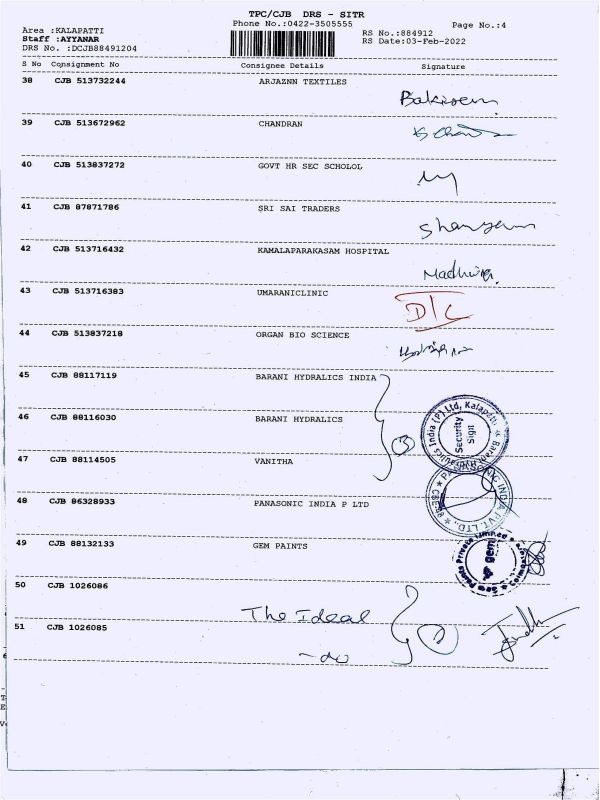 TPC/CJB DRS - SITR
Phone No.:0422-3505555 Page No.:4
Area :KALAPATTI
Staff :AYYANAR
DRS No. :DCJB88491204
RS No.:884912
RS Date:03-Feb-2022
S No Consignment No Consignee Details Signature
38 CJB 513732244 ARJAZNN TEXTILES
39 CJB 513672962 CHANDRAN
40 CJB 513837272 GOVT HR SEC SCHOLOL
41 CJB 87871786 SRI SAI TRADERS
42 CJB 513716432 KAMALAPARAKASAM HOSPITAL
43 CJB 513716383 UMARANICLINIC
D/C
44 CJB 513837218 ORGAN BIO SCIENCE
45 CJB 88117119 BARANI HYDRALICS INDIA
46 CJB 88116030 BARANI HYDRALICS
3
India (P) Ltd, Kalapatti
Security
Sign
47 CJB 88114505 VANITHA
48 CJB 86328933 PANASONIC INDIA P LTD
49 CJB 88132133 GEM PAINTS
gem
50 CJB 1026086 The Ideal
2
51 CJB 1026085 -do